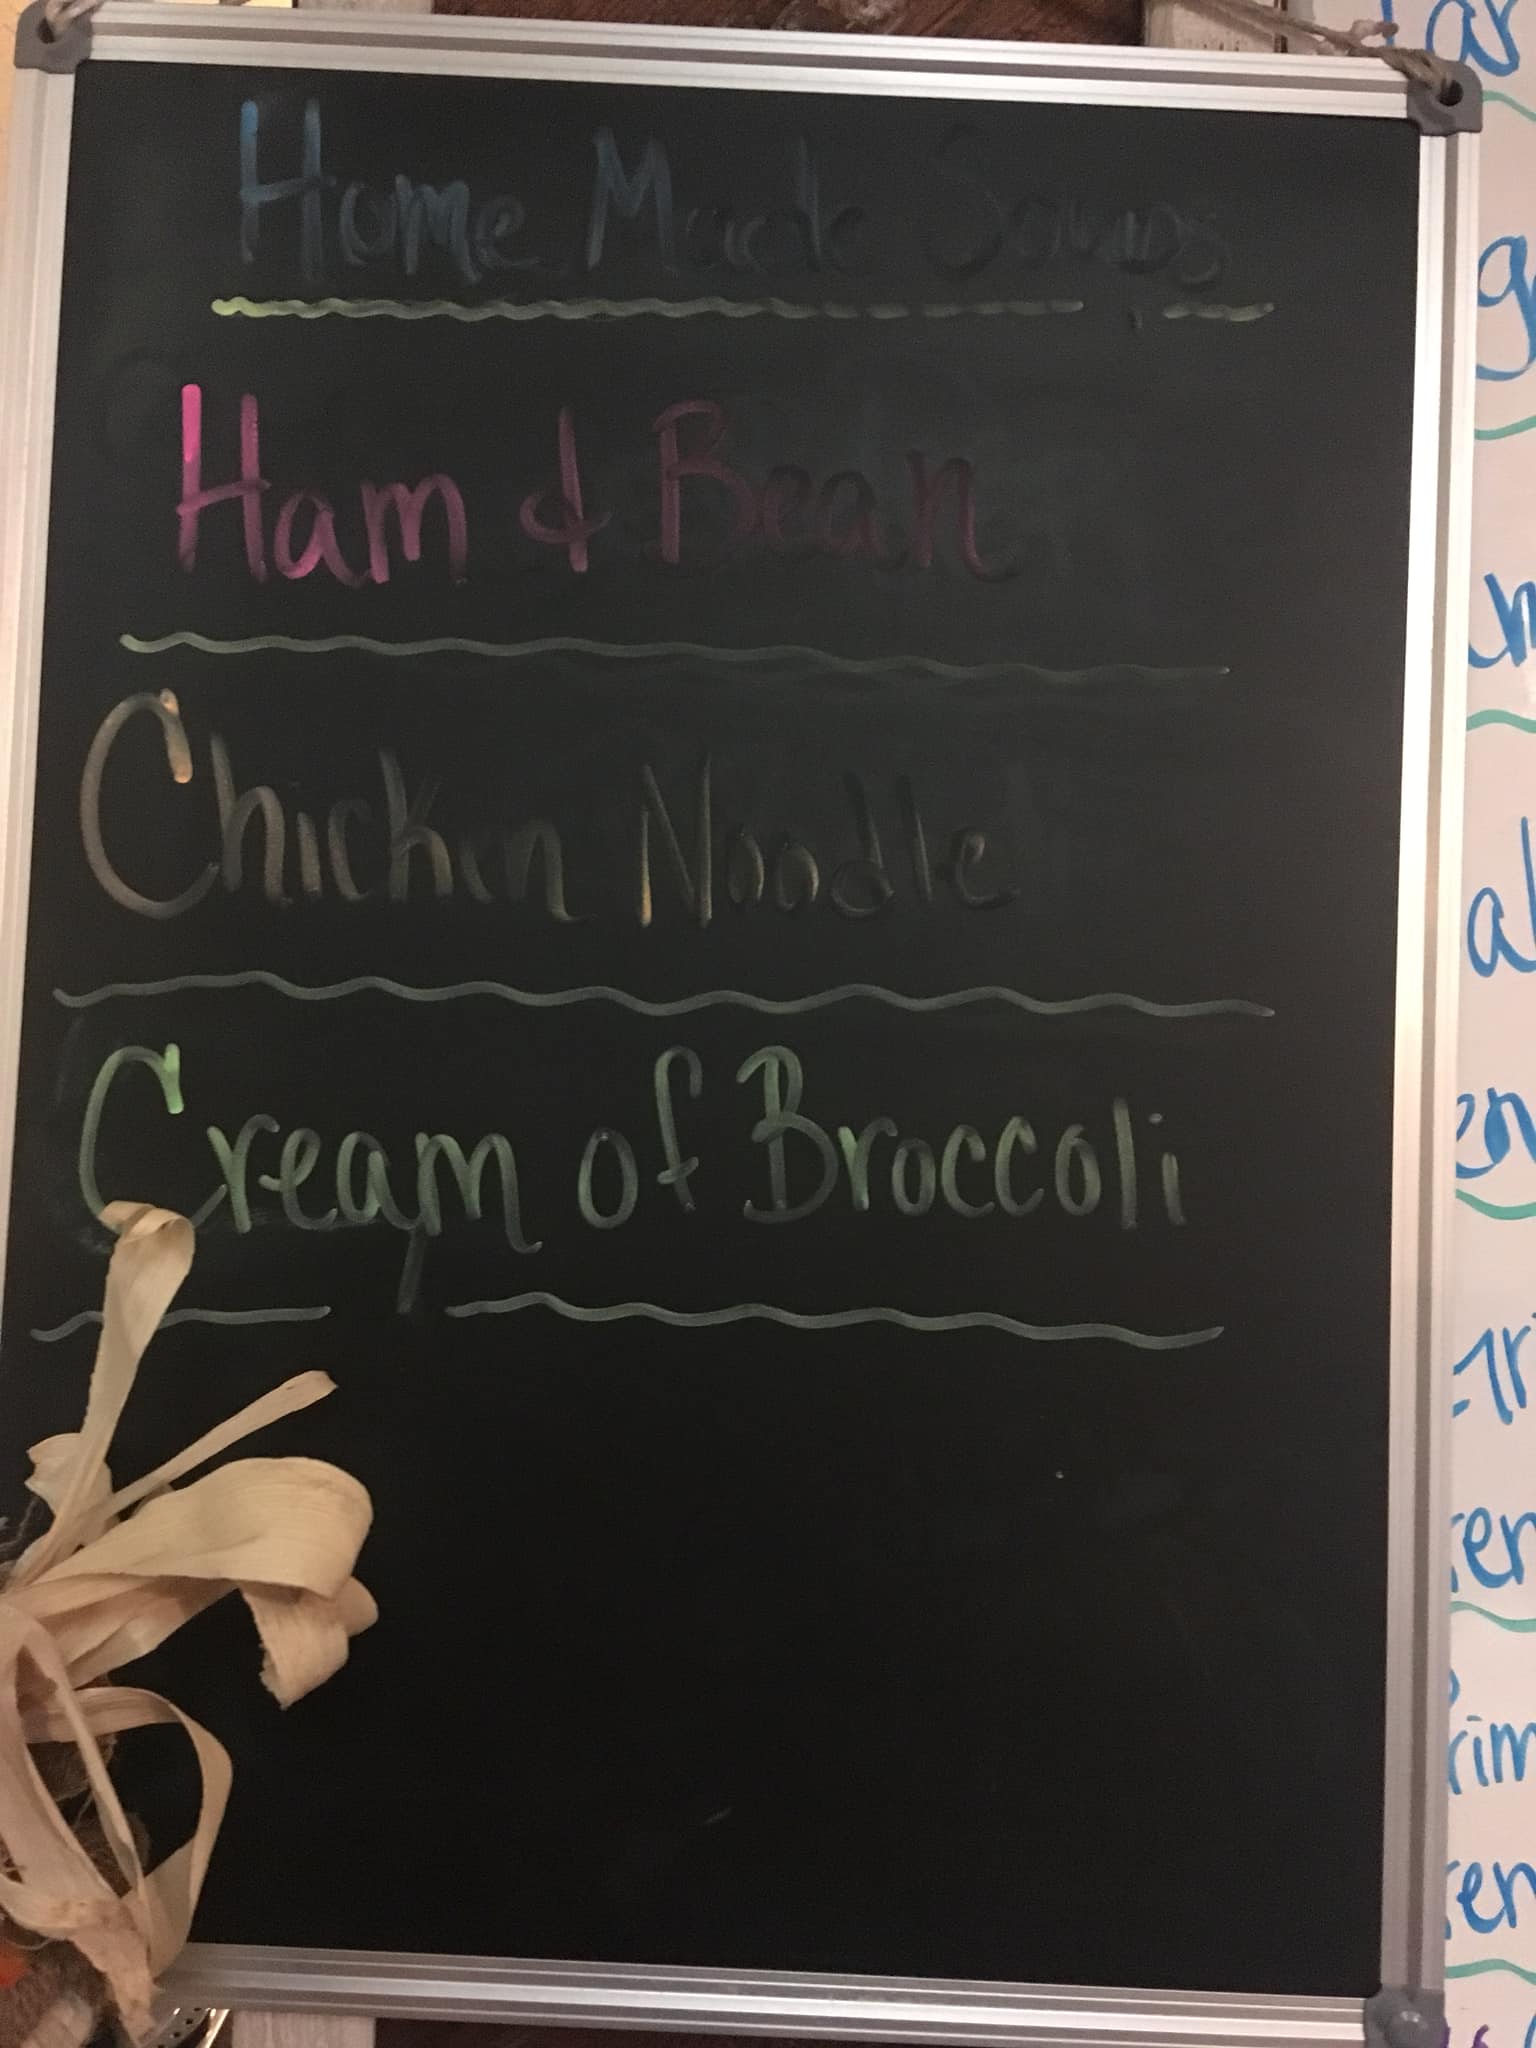 Home Made Soups
Ham & Bean
Chicken Noodle
Cream of Broccoli